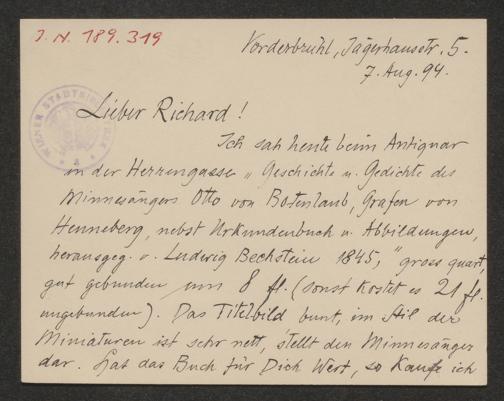 J. N. 189.319
Vorderbrühl, Jägerhausstr. 5.
7. Aug. 94.
WIENER STADTBIBLIOTHEK
Lieber Richard!
Ich sah heute beim Antiquar
in der Herrengasse „Geschichte u. Gedichte des
Minnesängers Otto von Botenlaub, Grafen von
Henneberg, nebst Urkundenbuch u. Abbildungen,
herausgeg. v. Ludwig Bechstein 1845," gross quart,
gut gebunden um 8 fl. (sonst kostet es 21 fl.
ungebunden). Das Titelbild bunt, im Stil der
Miniaturen ist sehr nett, stellt den Minnesänger
dar. Hat das Buch für Dich Wert, so kaufe ich